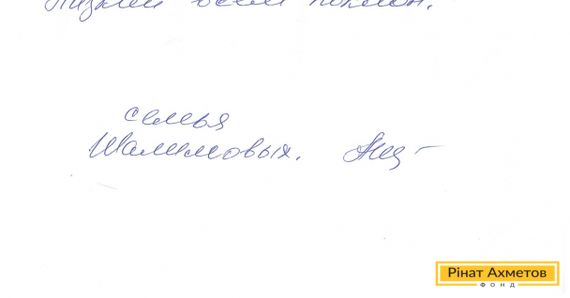 Низкий всем поклон.
семья
Шалимовых.
Рінат Ахметов
ФОНД